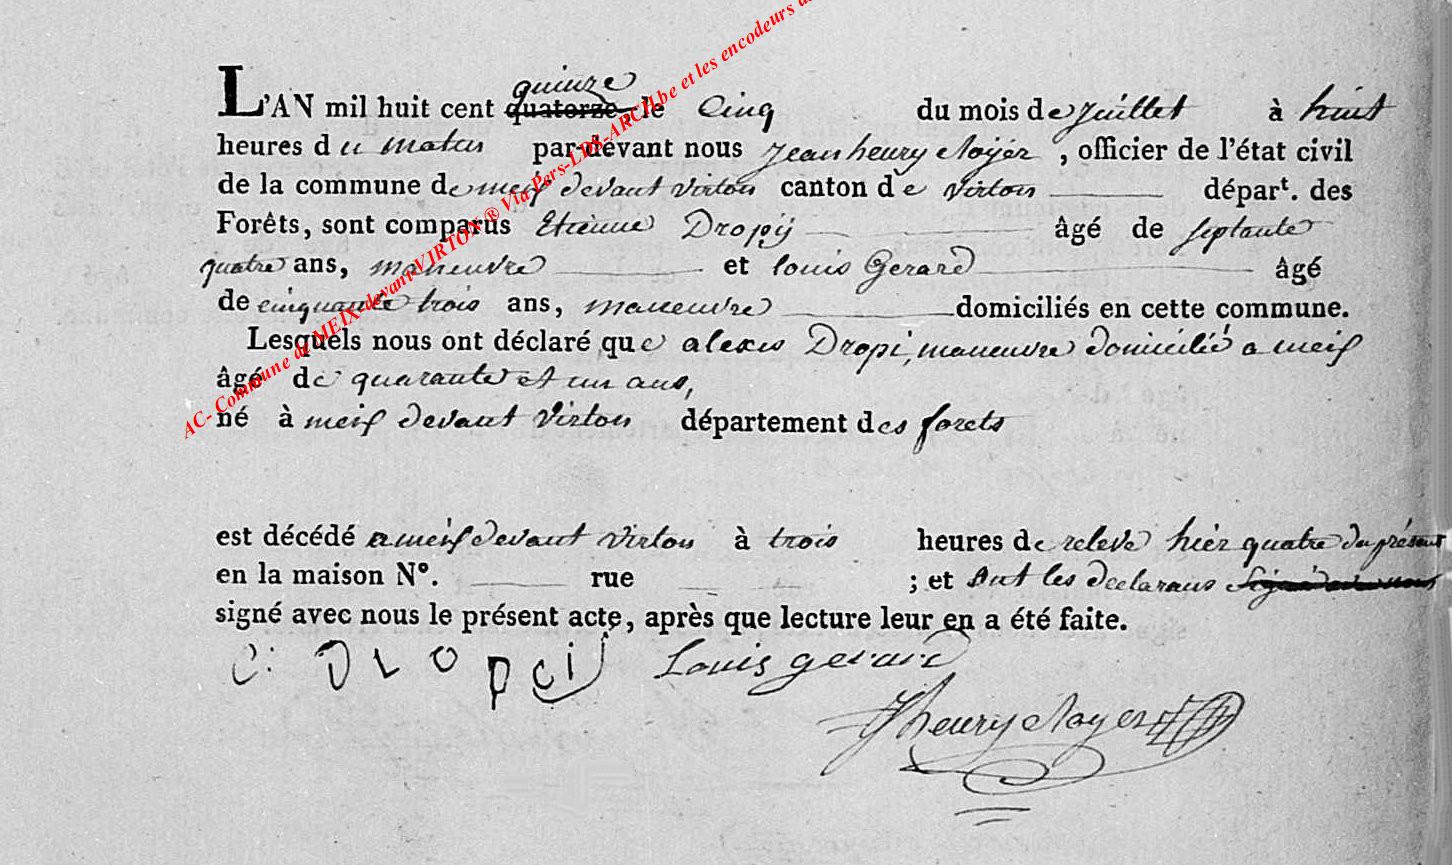 quinze
L'AN mil huit cent quatorze, le Cinq du mois de juillet à huit
heures du matin par-devant nous jean henry Noyer, officier de l'état civil
de la commune de meix devant virton canton de virton départ. des
Forêts, sont comparus Etienne Dropÿ âgé de septante
quatre ans, maneuvre et louis Gerard âgé
de cinquante trois ans, maneuvre domiciliés en cette commune.
Lesquels nous ont déclaré que alexis Dropi, maneuvre domicilié a meix
âgé de quarante et un ans,
né à meix devant Virton département des forets
est décédé a meix devant virton à trois heures de relevé hier quatre du présent
en la maison N°. rue ; et ont les declarans signé avec nous
signé avec nous le présent acte, après que lecture leur en a été faite.
e: Dropeij Louis gerard
jhenry Noyer
AC- Commune de MEIX-devant-VIRTON ® Via Pers-LDS-ARCH.be et les encodeurs